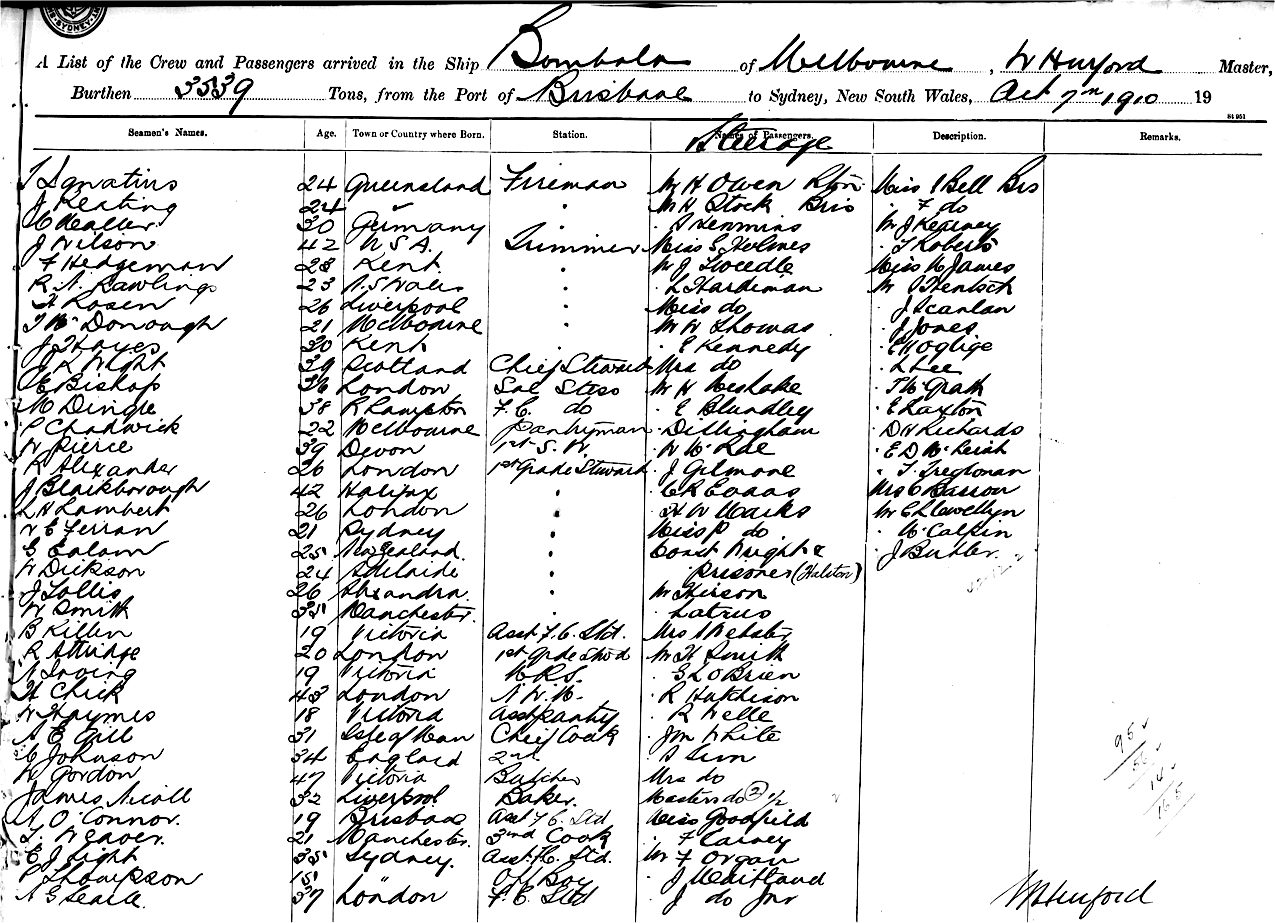 SYDNEY
A List of the Crew and Passengers arrived in the Ship Bombala of Melbourne, W Hurford Master,
Burthen 3539 Tons, from the Port of Brisbane to Sydney, New South Wales, Oct 7th 1910 19
St 951
Seamen's Names. Age. Town or Country where Born. Station. Names of Passengers. Description. Remarks.
Steerage
T Ignatius 24 Queensland Fireman Mr H Owen Rton Miss I Bell Bris
J Keating 24 " " Mr H Stock Bris " F do
30 Germany " " S Hemmins Mr J Kearney
J Wilson 42 U.S.A. Trimmer Miss E Holmes " T Roberts
F Hedgeman 28 Kent " Mr J Tweedle Miss M James
R A Rawlings 23 N.S Wales " " L Hardiman Mr J Hentsch
H Rosen 26 Liverpool " Miss do " J Scanlan
T McDonough 21 Melbourne " Mr W Thomas " J Jones
J Hayes 30 Kent " " E Kennedy
J R Wight 39 Scotland Chief Steward Mrs do " L Lee
E Bishop 36 London Sal Stess Mr H " T McGrath
M Dingle 38 F.C. do " E Blundley " E Laxton
P Chadwick 22 Melbourne Pantryman " Dillingham " D H Richards
W Pierce 39 Devon 1st S.W. " W McRae " E D McLeish
R Alexander 26 London 1st Grade Steward " J Gilmore " T Tregonan
J Blackborough 42 Halifax " " C R Evans Mrs C Basson
L H Lambert 26 London " " H W Marks Mr E Llewellyn
W E Ferran 21 Sydney " Miss P do " McCalkin
G Ealam 25 New Zealand " Const Wright & " J Butler
W Dickson 24 Adelaide " prisoner (Halston)
J Lollis 26 Alexandra " Mr Hirson
W Smith 35 Manchester " " Latrus
B Killen 19 Victoria Asst F.C. Std. Mrs Webster
R Attridge 20 London 1st Grde Stwd Mr H Smith
A Irving 19 Victoria " G L O'Brien
H Chick 43 London " R Hutchison
W Haymes 18 Victoria Asst Pantry " R Welle
A E Gill 31 Isle of Man Chief Cook " Jm White
C Johnson 34 England 2nd " " S Sim
W Gordon 47 Victoria Butcher Mrs do
James Nicoll 32 Liverpool Baker. Masters do (2) 1/2
A O'Connor. 19 Brisbane Asst F.C. Std Miss Goodfield
T. Weaver. 21 Manchester. 3rd Cook " F Carney
E J Light 35 Sydney. Asst F.C. Std. Mr F Organ
P Thompson 15 " Off Boy " J Maitland
A G Searle. 37 London F.C. Std " J do Jnr
95
56
14
165
W Hurford